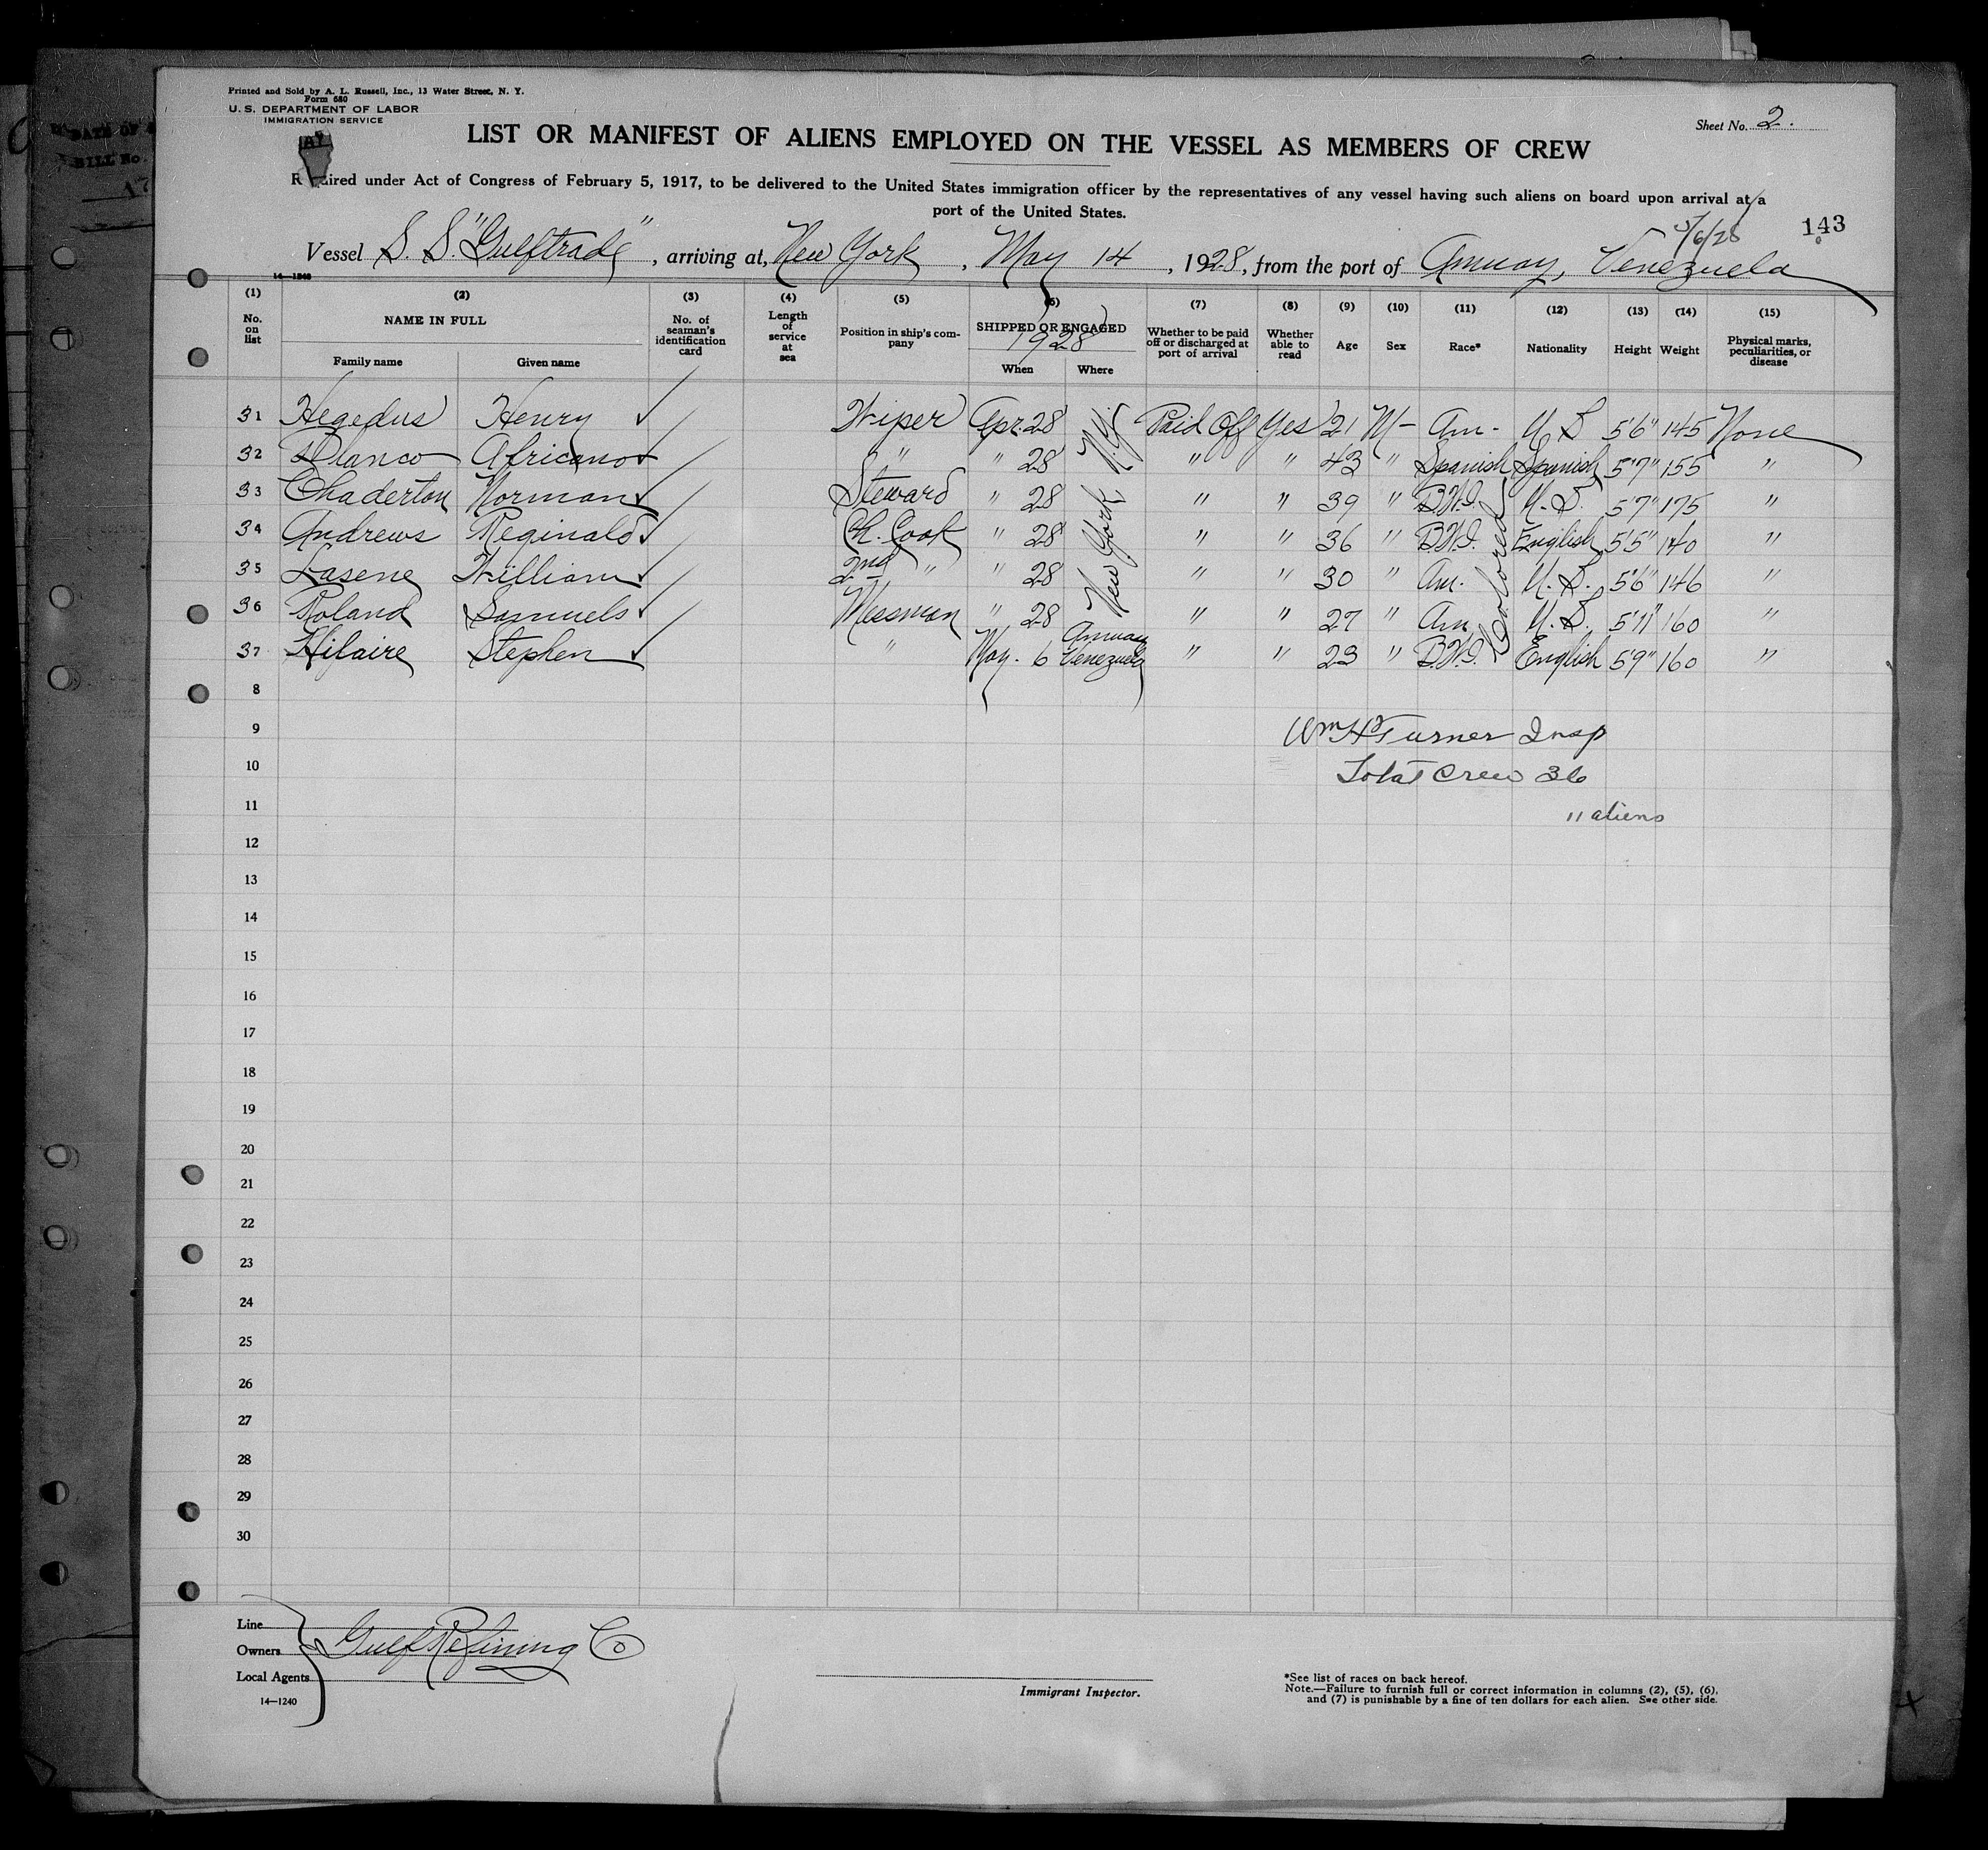 Printed and Sold by A. L. Russell, Inc., 13 Water Street, N. Y.
Form 680
U. S. DEPARTMENT OF LABOR
IMMIGRATION SERVICE
Sheet No. 2.
LIST OR MANIFEST OF ALIENS EMPLOYED ON THE VESSEL AS MEMBERS OF CREW
Required under Act of Congress of February 5, 1917, to be delivered to the United States immigration officer by the representatives of any vessel having such aliens on board upon arrival at a
port of the United States.
5/6/28
143
Vessel S. S. "Gulftrade", arriving at, New York, May 14, 1928, from the port of Amuay, Venezuela
(1) (2) (3) (4) (5) (6) (7) (8) (9) (10) (11) (12) (13) (14) (15)
No. on list
NAME IN FULL
Family name Given name
No. of seaman's identification card
Length of service at sea
Position in ship's company
SHIPPED OR ENGAGED
1928
When Where
Whether to be paid off or discharged at port of arrival
Whether able to read
Age
Sex
Race*
Nationality
Height
Weight
Physical marks, peculiarities, or disease
31 Hegedus Henry ✓ Wiper Apr. 28 N.Y. Paid Off Yes 21 M- Am- U S 5'6" 145 None
32 Blanco Africano ✓ " " 28 " " 43 " Spanish Spanish 5"7" 155 "
33 Chaderton Norman ✓ Steward " 28 New York " " 39 " B.W.I. U.S. 5'7" 175 "
34 Andrews Reginald ✓ Ch. Cook " 28 " " 36 " B.W.I. English 5'5" 140 "
35 Lasene William ✓ 2nd " " 28 " " 30 " Am. U.S. 5'6" 146 "
36 Roland Samuels ✓ Messman " 28 " " 27 " Am. U.S. 5'11" 160 "
37 Hilaire Stephen ✓ " May. 6 Amuay Venezuela " " 23 " B.W.I. English 5'9" 160 "
Colored
8
9 Wm H Turner Insp
10 Total Crew 36
11 11 aliens
12
13
14
15
16
17
18
19
20
21
22
23
24
25
26
27
28
29
30
Line
Owners Gulf Refining Co
Local Agents
14—1240
Immigrant Inspector.
*See list of races on back hereof.
Note.—Failure to furnish full or correct information in columns (2), (5), (6),
and (7) is punishable by a fine of ten dollars for each alien. See other side.